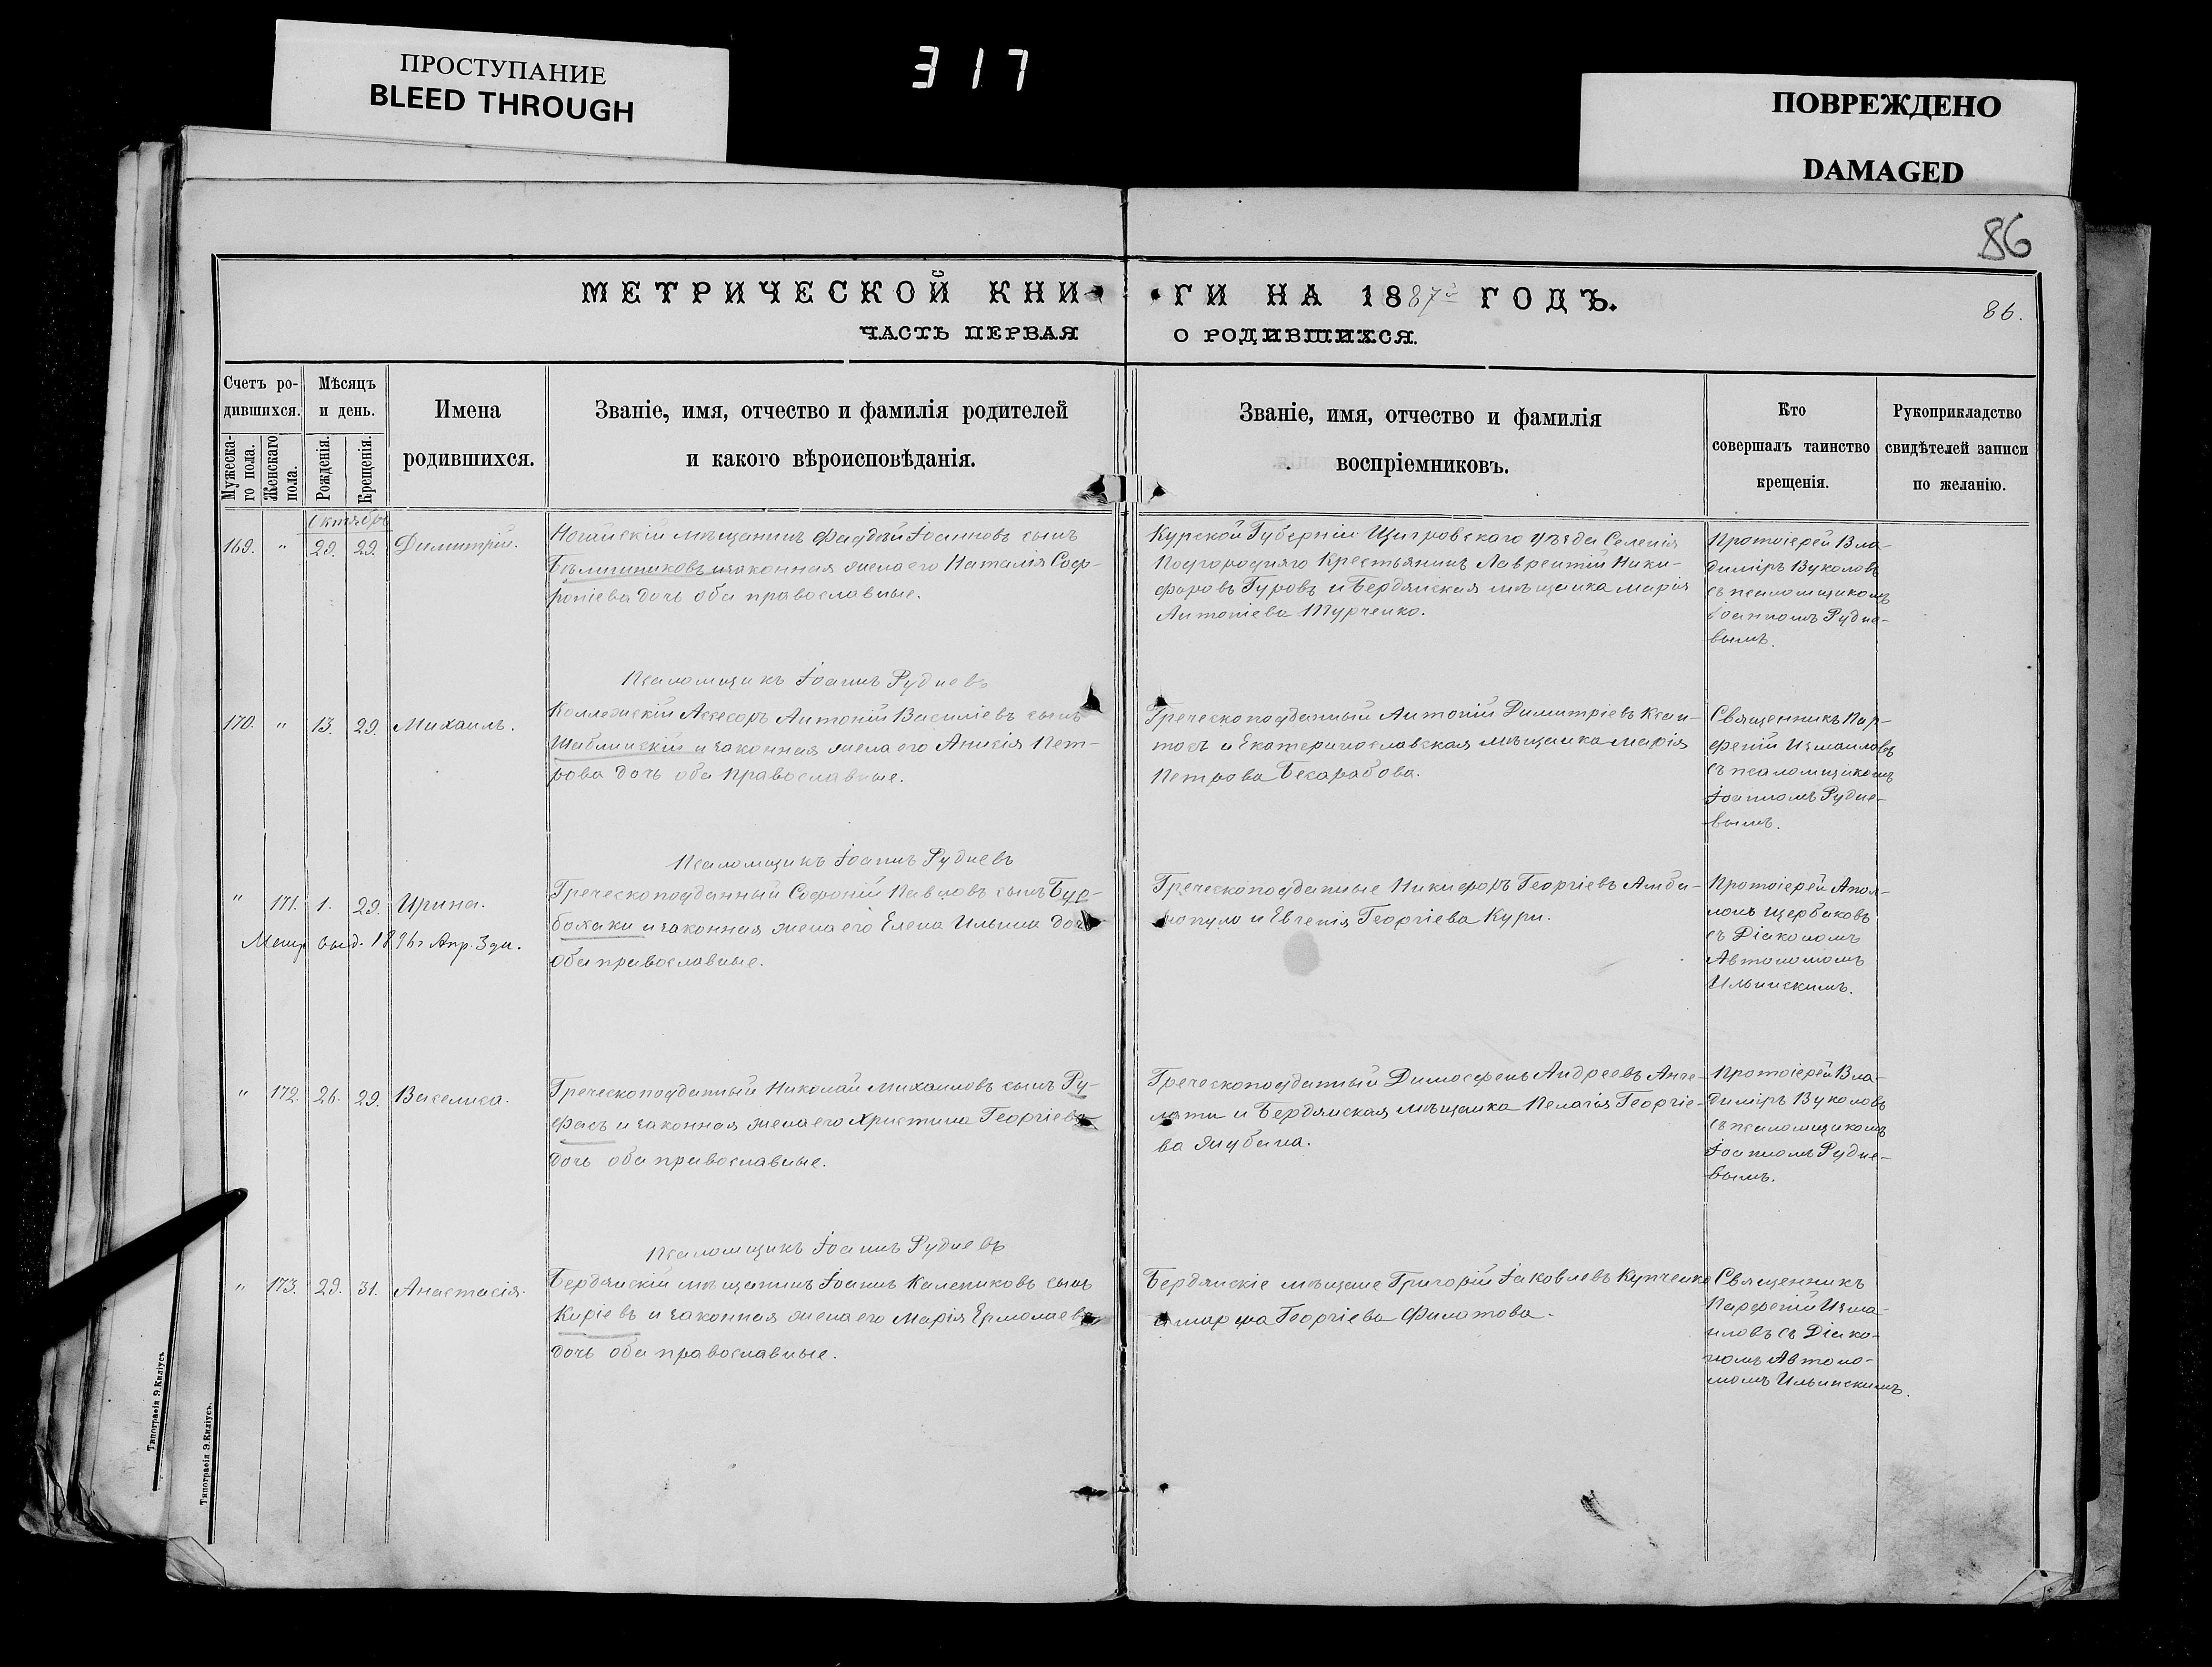 ПРОСТУПАНИЕ
BLEED THROUGH
317
ПОВРЕЖДЕНО
DAMAGED
86
МЕТРИЧЕСКОЙ КНИГИ НА 1887 ГОДЪ.
86.
ЧАСТЬ ПЕРВАЯ О РОДИВШИХСЯ.
Счетъ ро-
дившихся.
Мужеска-
го пола.
Женскаго
пола.
Мѣсяцъ
и день.
Рожденія.
Крещенія.
Имена
родившихся.
Званіе, имя, отчество и фамилія родителей
и какого вѣроисповѣданія.
Званіе, имя, отчество и фамилія
воспріемниковъ.
Кто
совершалъ таинство
крещенія.
Рукоприкладство
свидѣтелей записи
по желанію.
Октябрь
169. " 29. 29. Димитрій.
Ногайскій мѣщанинъ Фаддей Іоанновъ сынъ
и законная жена его Наталія Соф-
роніева дочь оба православные.
Курской Губерніи Щигровскаго уѣзда Селенія
Подгородняго Крестьянинъ Лаврентій Ники-
форовъ Гуровъ и Бердянская мѣщанка Марія
Антоніева Турченко.
Протоіерей Вла-
диміръ Вуколовъ
съ псаломщикомъ
Іоанномъ Рудне-
вымъ.
Псаломщикъ Іоаннъ Рудневъ
170. " 13. 29. Михаилъ.
Коллежскій Ассесоръ Антоній Василіевъ сынъ
Шаблинскій и законная жена его Анисія Пет-
рова дочь оба православные.
Греческоподданный Антоній Димитріевъ Ксан-
тосъ и Екатеринославская мѣщанка Марія
Петрова Бесарабова.
Священникъ Пар-
феній Измаиловъ
съ псаломщикомъ
Іоанномъ Рудне-
вымъ.
Псаломщикъ Іоаннъ Рудневъ
" 171. 1. 29. Ирина.
Метр. выд. 1896 г. Апр. 3 дн.
Греческоподданный Софоній Павловъ сынъ Бур-
бахаки и законная жена его Елена Ильина дочь
оба православные.
Греческоподданные Никифоръ Георгіевъ Амба-
нопуло и Евгенія Георгіева Кури.
Протоіерей Апол-
лонъ Щербаковъ
съ Діакономъ
Автономомъ
Ильинскимъ.
" 172. 26. 29. Васелиса.
Греческоподданный Николай Михаиловъ сынъ Ру-
фасъ и законная жена его Христина Георгіева
дочь оба православные.
Греческоподданный Димосфенъ Андреевъ Анге-
лати и Бердянская мѣщанка Пелагія Георгіе-
ва Якубина.
Протоіерей Вла-
диміръ Вуколовъ
съ псаломщикомъ
Іоанномъ Рудне-
вымъ.
Псаломщикъ Іоаннъ Рудневъ
" 173. 29. 31. Анастасія.
Бердянскій мѣщанинъ Іоаннъ Калениковъ сынъ
Киріевъ и законная жена его Марія Ермолаева
дочь оба православные.
Бердянскіе мѣщане Григорій Іаковлевъ Купченко
и Марфа Георгіева Филатова.
Священникъ
Парфеній Изма-
иловъ съ Діако-
номъ Автоно-
момъ Ильинскимъ.
Типографія Э. Киліусъ.
Типографія Э. Киліусъ.